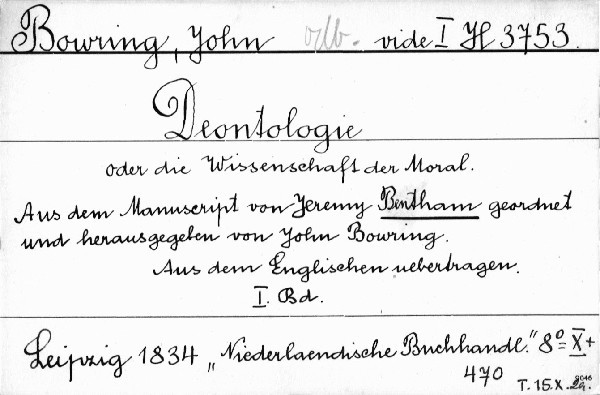 Bowring, John vide I H 3753.
Deontologie
oder die Wissenschaft der Moral.
Aus dem Manuscript von Jeremy Bentham geordnet
und herausgegeben von John Bowring.
Aus dem Englischen uebertragen.
I. Bd.
Leipzig 1834 „Niederlaendische Buchhandl." 8° X +
470
T. 15. X.